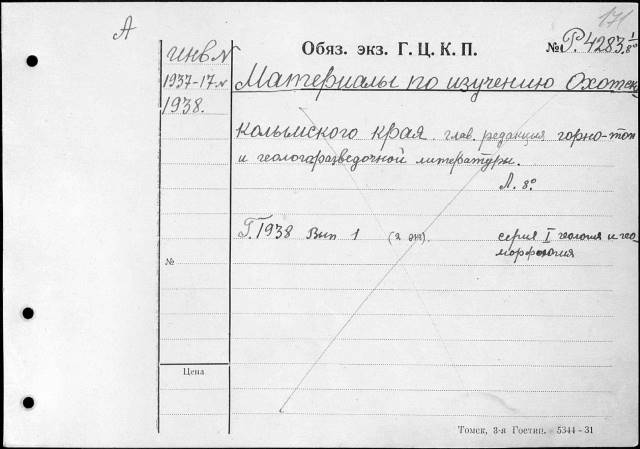 171
А
инв. №
1937-17.
1938.
Обяз. экз. Г. Ц. К. П.
№ Р. 4283. 1/8°
Материалы по изучению Охотско
Колымского края. глав. редакция горно-топ
и геологоразведочной литературы.
Л. 8°
Г. 1938 Вып 1 (2 эк). серия I геология и гео
морфология
№
Цена
Томск, 3-я Гостип. 5344–31